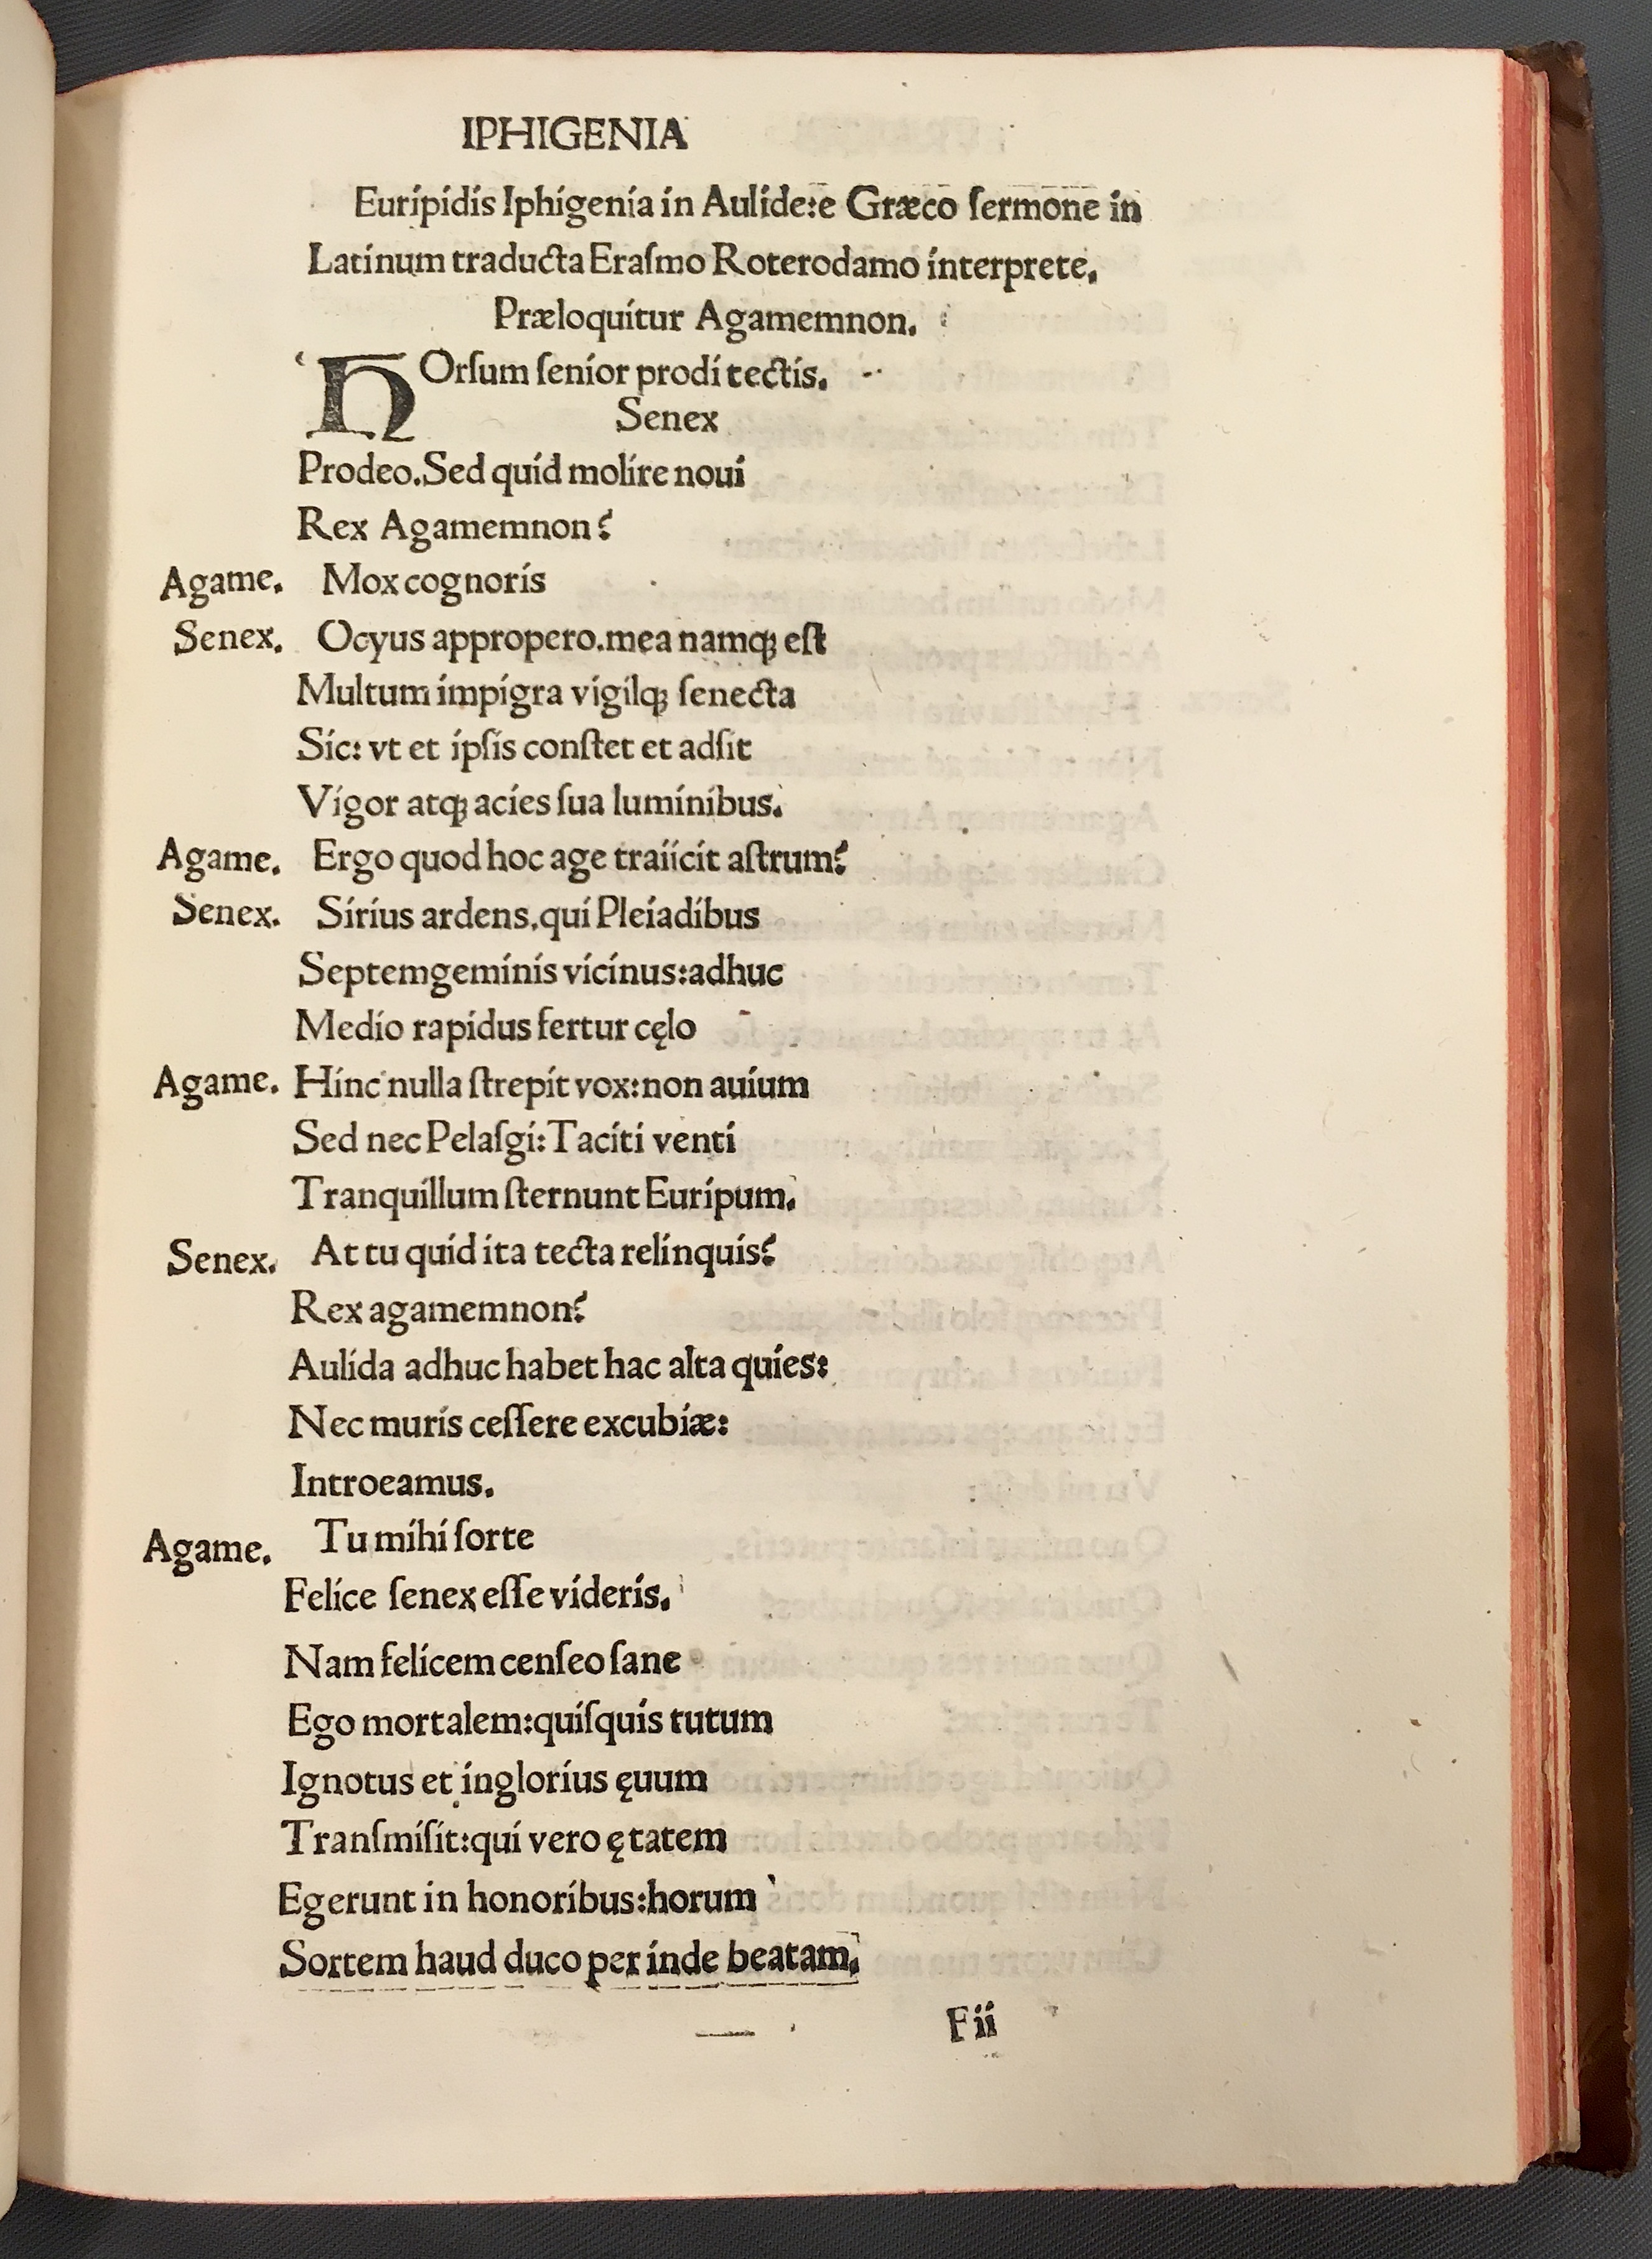 IPHIGENIA
Euripidis Iphigenia in Aulide:e Græco ſermone in
Latinum traducta Eraſmo Roterodamo interprete.
Præloquitur Agamemnon.
HOrſum ſenior prodi tectis.
Senex
Prodeo.Sed quid molire noui
Rex Agamemnon?
Agame. Mox cognoris
Senex. Ocyus appropero.mea namqꝫ eſt
Multum impigra vigilqꝫ ſenecta
Sic: vt et ipſis conſtet et adſit
Vigor atqꝫ acies ſua luminibus.
Agame. Ergo quod hoc age traiicit aſtrum?
Senex. Sirius ardens.qui Pleiadibus
Septemgeminis vicinus:adhuc
Medio rapidus fertur cęlo
Agame. Hinc nulla ſtrepit vox:non auium
Sed nec Pelaſgi:Taciti venti
Tranquillum ſternunt Euripum.
Senex. At tu quid ita tecta relinquis?
Rex agamemnon?
Aulida adhuc habet hac alta quies:
Nec muris ceſſere excubiæ:
Introeamus.
Agame. Tu mihi ſorte
Felice ſenex eſſe videris.
Nam felicem cenſeo ſane
Ego mortalem:quiſquis tutum
Ignotus et inglorius ęuum
Tranſmiſit:qui vero ętatem
Egerunt in honoribus:horum
Sortem haud duco per inde beatam.
Fii